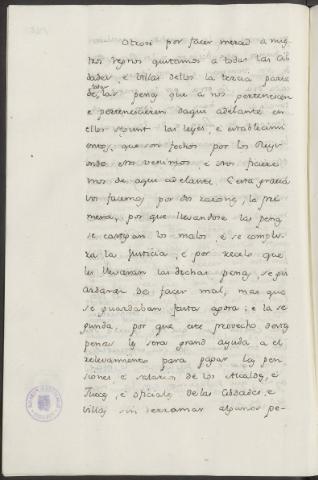 Otrosi por facer merced a nues
tros regnos quitamos a todas las cib
dades, e villas dellos la tercia parte
de todas las penas que a nos pertenescen
e pertenescieren daqui adelante en
ellos segunt las leyes, e establecimi
entos, que son fechos por los Reyes
onde nos venimos, e nos farere
mos de aqui adelante. E esta gracia
les facemos por dos razones, la pri
mera, por que llevandose las penas
se castigan los malos, e se complira
ra la justicia, e por recelo que
les llevaran las dichas penas, se gu
ardaran de facer mal, mas que
se guardaban fasta agora: e la se
gunda, por que este provecho destas
penas les sera grand ayuda a el
relevamiento para pagar las pen
siones e salarios de los Alcaldes, e
Jueces, e oficiales de las Cibdades, e
villas sin derramar algunos pe-